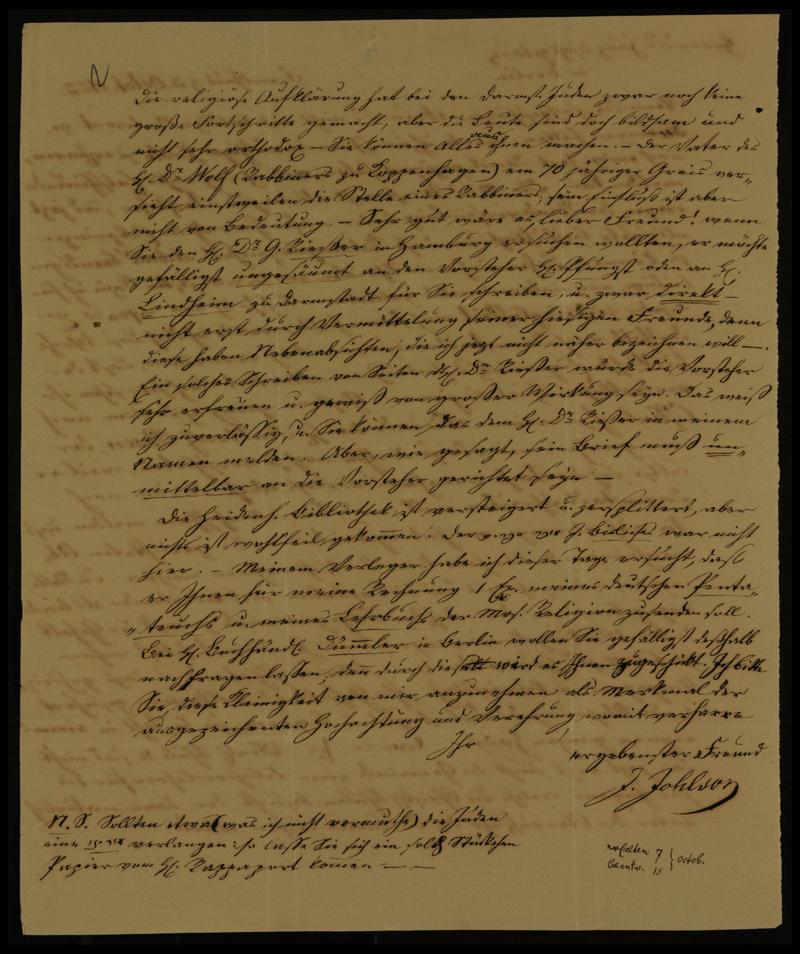 Die religiöse Aufklärung hat bei den Darmst. Juden zwar noch keine
große Fortschritte gemacht, aber die Leute sind doch bildsam und
nicht sehr orthodox – Sie können Alles aus ihnen machen. – Der Vater des
H. Dr Wolf (Rabbiners zu Koppenhagen) ein 70 jähriger Greis ver-
sieht einstweilen die Stelle eines Rabbiners; sein Einfluß ist aber
nicht von Bedeutung. – Sehr gut wäre es, lieber Freund! wenn
Sie den H. Dr G. Riesser in Hamburg ersuchen wollten, er möchte
gefälligst ungesäumt an den Vorsteher H. Pfungst oder an H.
Lindheim zu Darmstadt für Sie schreiben, u. zwar direkt –
nicht erst durch Vermittelung seiner hiesigen Freunde, denn
diese haben Nebenabsichten, die ich jezt nicht näher bezeichnen will –.
Ein solches Schreiben von Seiten des H. Dr Riesser würde die Vorsteher
sehr erfreuen u. gewiß von großer Wirkung seyn. Das weiß
ich zuverlässig, u. Sie können das dem H. Dr Riesser in meinem
Namen melden. Aber, wie gesagt, sein Brief muß un-
mittelbar an die Vorsteher gerichtet seyn –
Die Heidenh. Bibliothek ist versteigert u. zersplittert, aber
nichts ist wohlfeil gekommen. Der war nicht
hier. – Meinem Verleger habe ich dieser Tage ersucht, daß
er Ihnen für meine Rechnung 1 Ex. meines deutschen Penta-
teuchs u. meines Lehrbuchs der Mos. Religion zusenden soll.
Bei H. Buchhändl. Dümmler in Berlin wollen Sie gefälligst deßhalb
nachfragen lassen, denn durch diesen wird es Ihnen zugeschickt. Ich bitte
Sie, diese Kleinigkeit von mir anzunehmen als Merkmal der
ausgezeichneten Hochachtung und Verehrung, womit verharre
Ihr ergebenster Freund
J. Johlson
N. S. Sollten etwa (was ich nicht vermuthe) die Juden
eine verlangen: so lasse Sie sich ein solches Stückchen
Papier vom H. Rappaport kommen – –
erhalten 7 } Octob.
beantw. 15